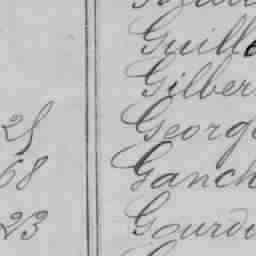 Guille
Gilber
25 George
68 Ganch
23 Gourd